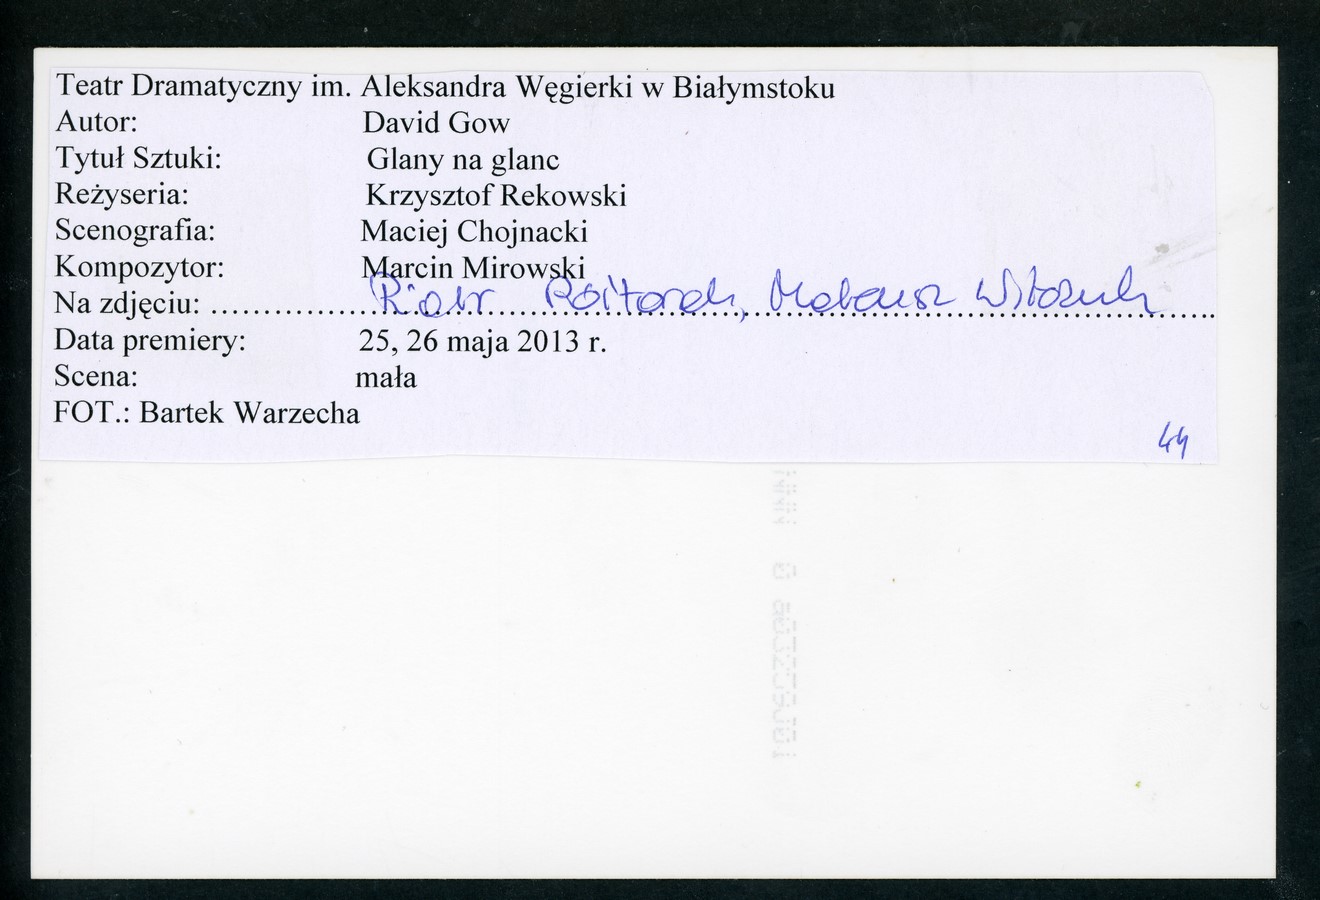 Teatr Dramatyczny im. Aleksandra Węgierki w Białymstoku
Autor: David Gow
Tytuł Sztuki: Glany na glanc
Reżyseria: Krzysztof Rekowski
Scenografia: Maciej Chojnacki
Kompozytor: Marcin Mirowski
Na zdjęciu: Piotr Półtorak, Mateusz Witczuk
Data premiery: 25, 26 maja 2013 r.
Scena: mała
FOT.: Bartek Warzecha
44